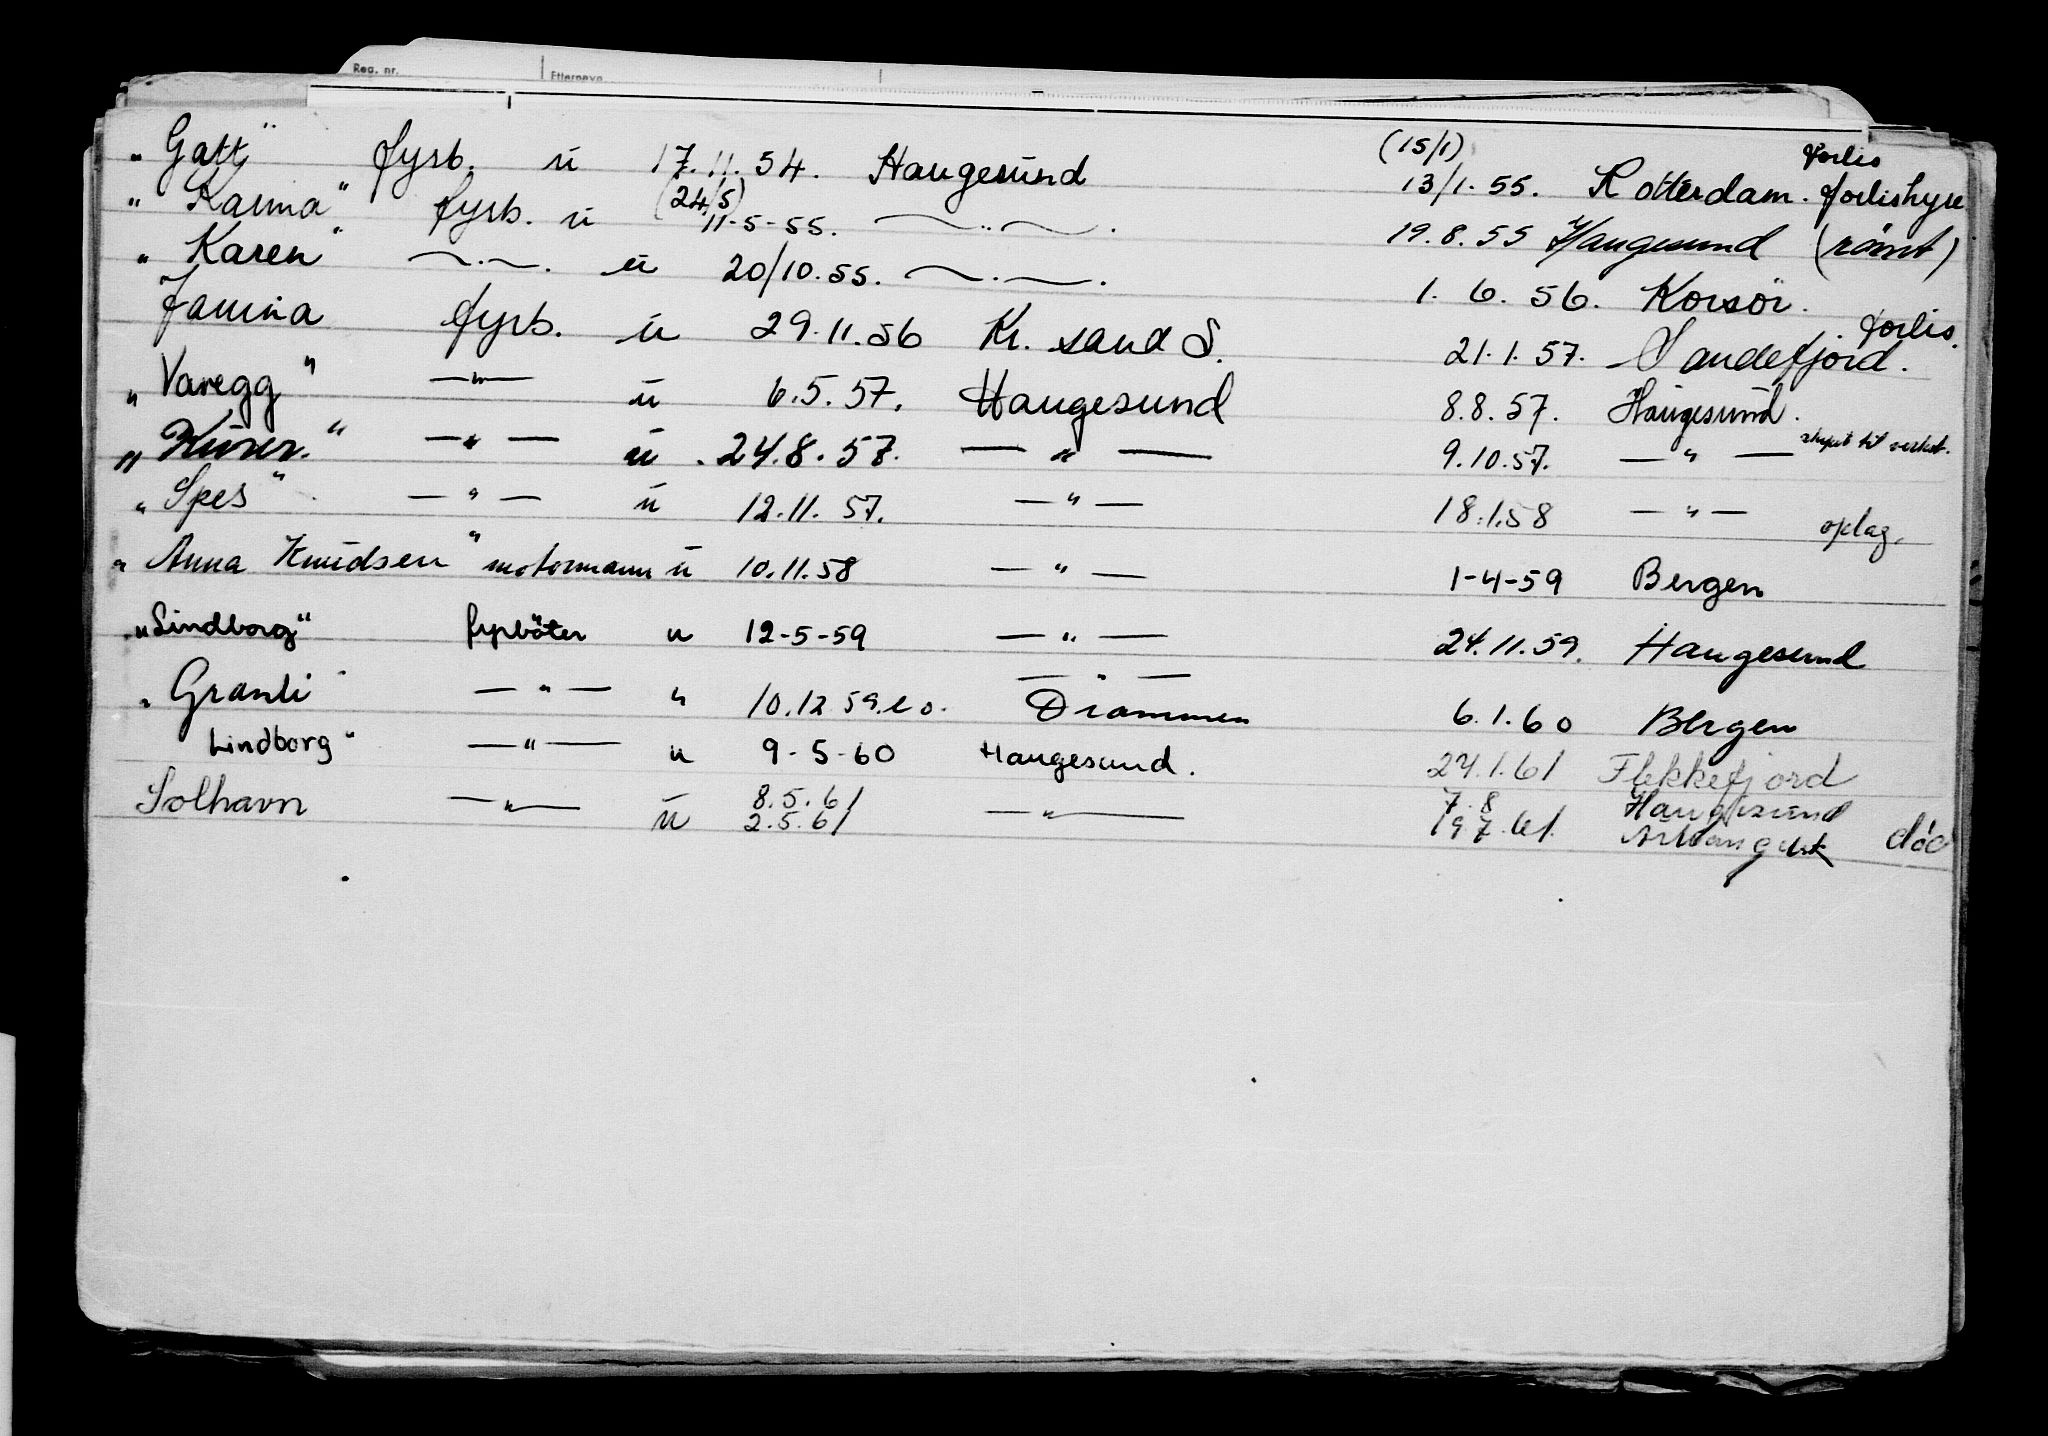 Reg. nr. Etternavn
"Gatt" fyrb. u 17.11.54. Haugesund (15/1) 13/1.55. Rotterdam. forlis forlishyre
"Karma" fyrb. u (24/5) 11-5-55. —〃—. 19.8.55 Haugesund (römt)
"Karen" —〃—. u 20/10.55. —〃—. 1.6.56. Korsör.
Janina fyrb. u 29.11.56 Kr. sand S. 21.1.57. Sandefjord. forlis.
"Varegg" —〃— u 6.5.57. Haugesund 8.8.57. Haugesund.
—〃— u 24.8.57. —〃— 9.10.57. —〃— skipet til verkst.
"Spes" —〃— u 12.11.57. —〃— 18.1.58 —〃— oplag.
"Anna Knudsen" motormann u 10.11.58 —〃— 1-4-59 Bergen
"Lindborg" fyrböter u 12-5-59 —〃— 24.11.59. Haugesund
"Granli" —〃— " 10.12 59. e o. —〃— Drammen 6.1.60 Bergen
Lindborg" —〃— u 9-5-60 Haugesund. 24.1.61 Flekkefjord
Solhavn —〃— u 8.5.61 —〃— 7.8 Haugesund
2.5.61 19.7.61. Arkangelsk död